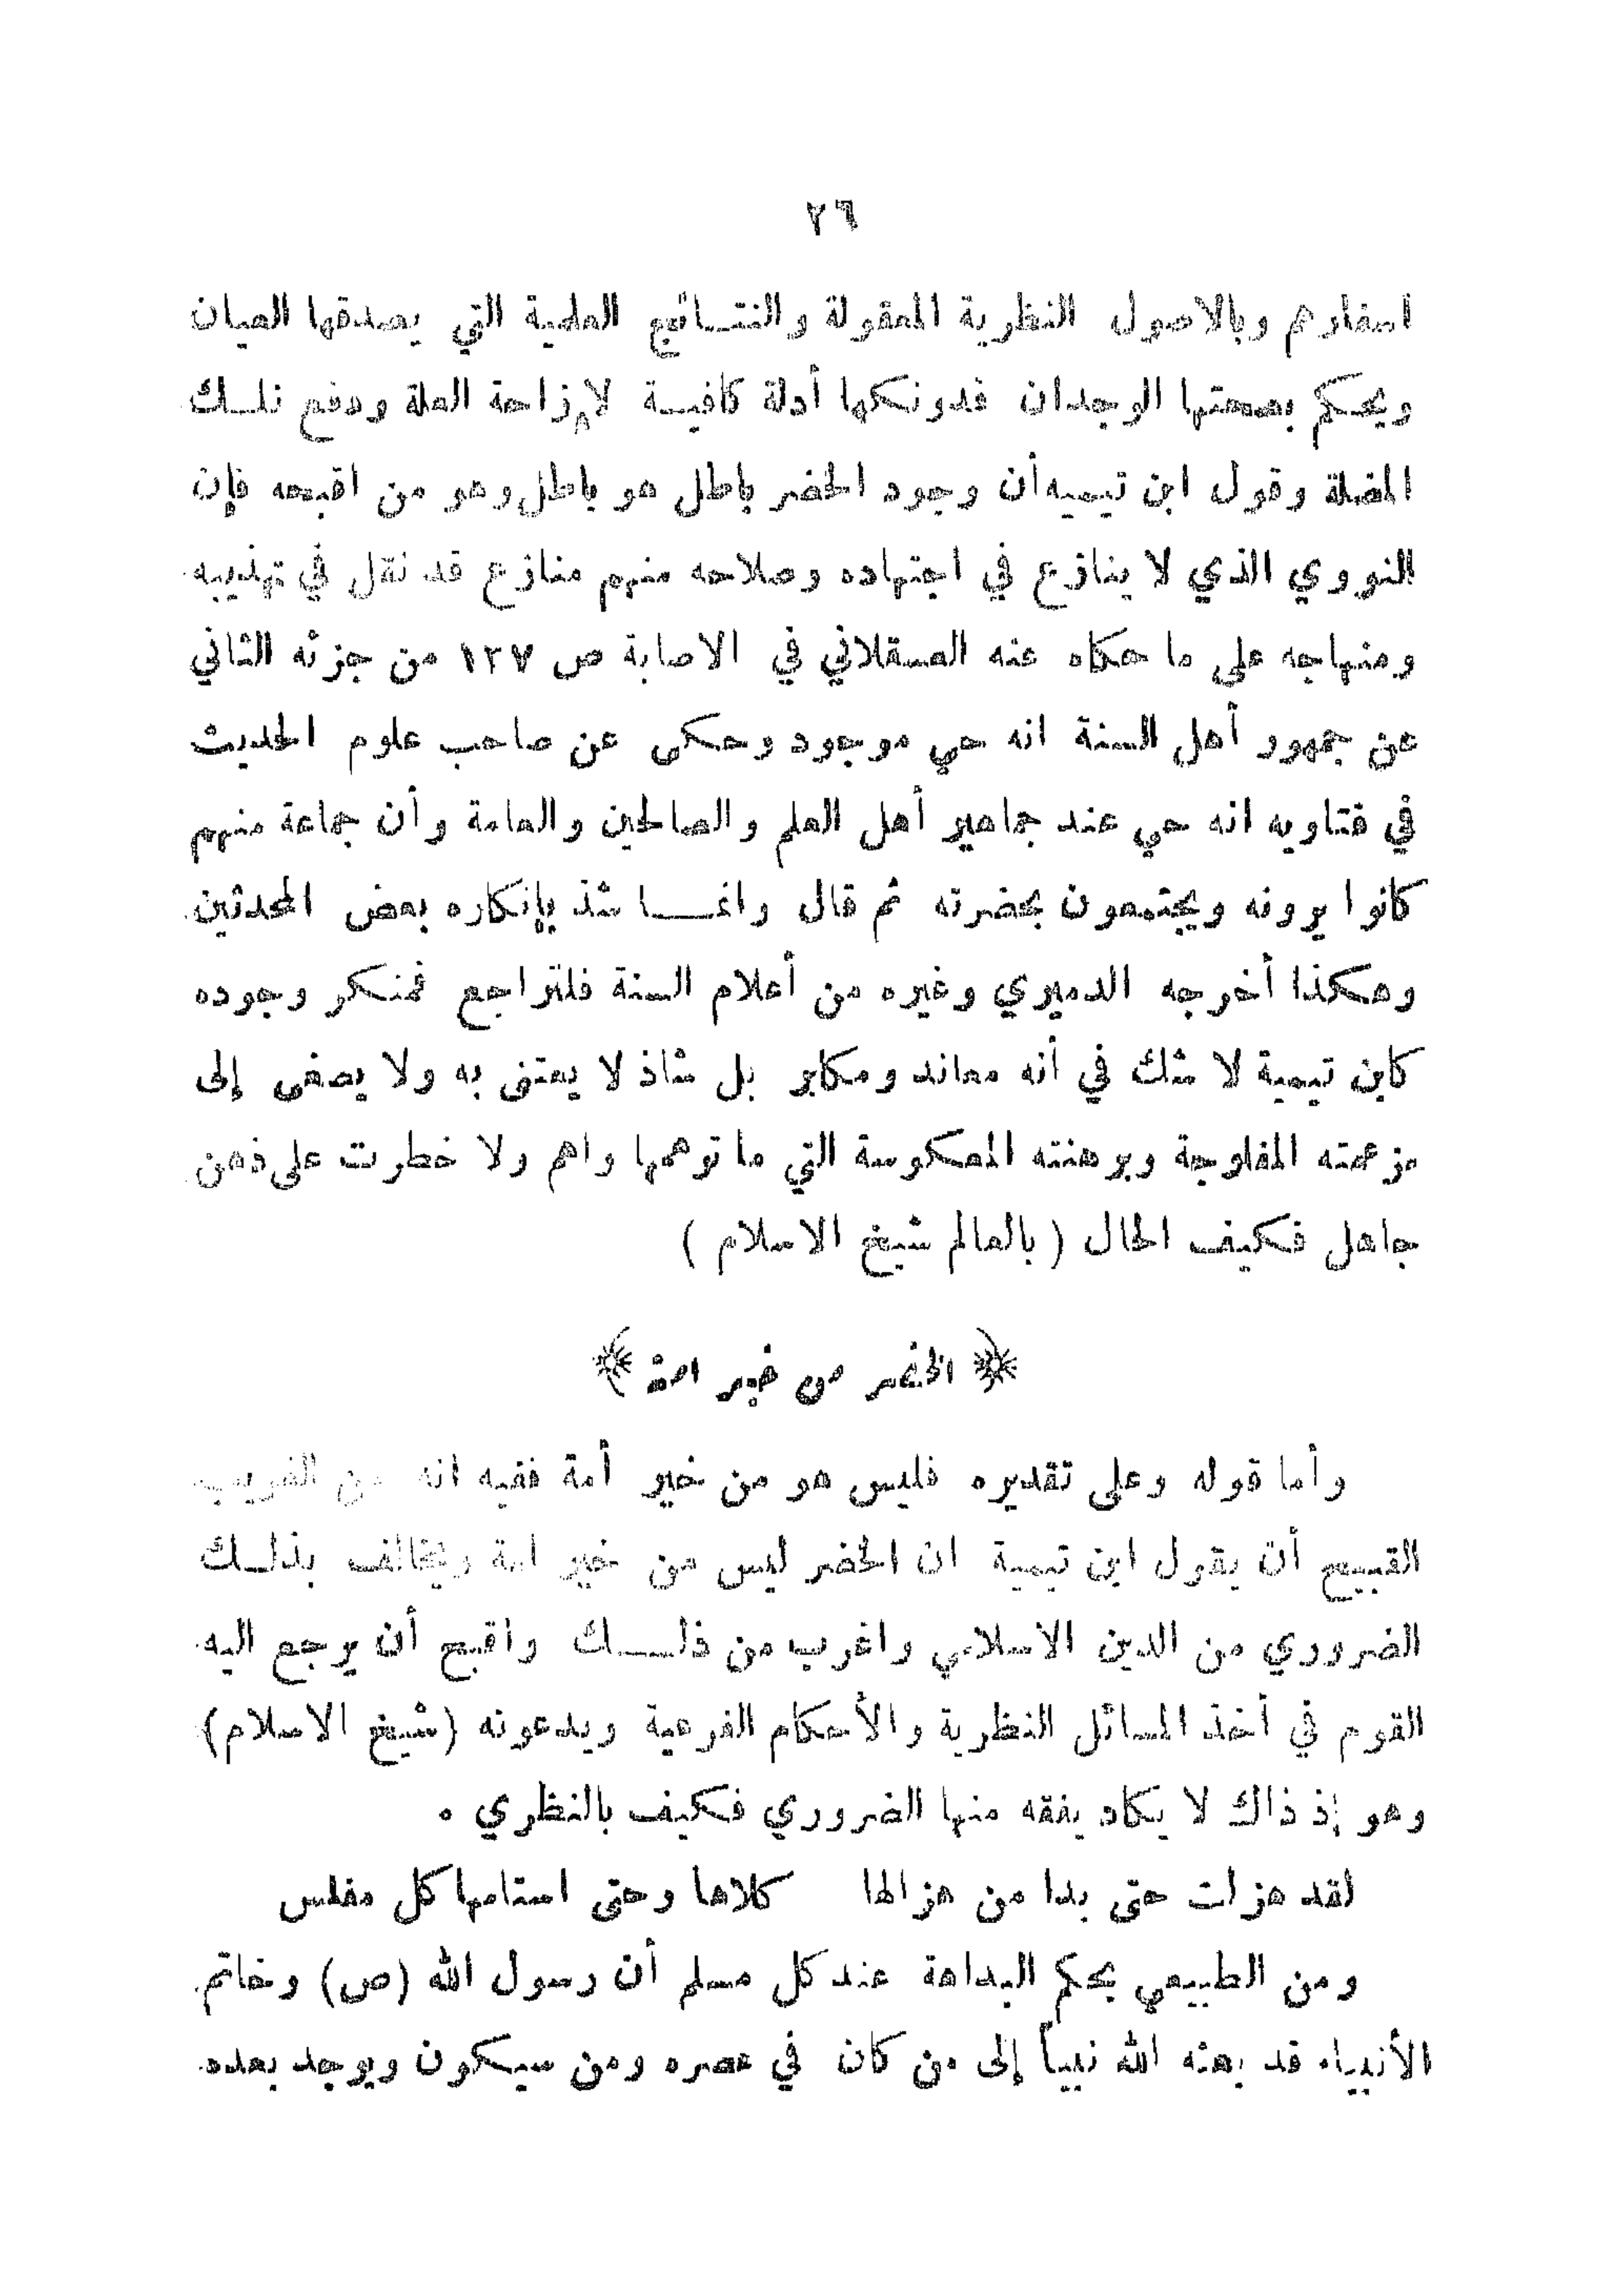 ٢٦
اسفارهم وبالاصول النظرية المعقولة والنتـائج العلمية التي يصدقها العيان
ويحكم بصحتها الوجدان فدونكها أدلة كافيـة لإزاحة العلة ودفع تلـك
المضلة وقول ابن تيميه أن وجود الخضر باطل هو باطل وهو من اقبحه فإن
النووي الذي لا ينازع في اجتهاده وصلاحه منهم منازع قد نقل في تهذيبه
ومنهاجه على ما حكاه عنه العسقلاني في الاصابة ص ١٢٧ من جزئه الثاني
عن جمهور أهل السنة انه حي موجود وحكى عن صاحب علوم الحديث
في فتاويه انه حي عند جماهير أهل العلم والصالحين والعامة وأن جماعة منهم
كانوا يرونه ويجتمعون بحضرته ثم قال وانمـا شذ بإنكاره بعض المحدثين
وهكذا أخرجه الدميري وغيره من أعلام السنة فلتراجع فمنكر وجوده
كابن تيمية لا شك في أنه معاند ومكابر بل شاذ لا يعتنى به ولا يصغى إلى
مزعمته المفلوجة وبرهنته المعكوسة التي ما توهمها واهم ولا خطرت على ذهن
جاهل فكيف الحال ( بالعالم شيخ الاسلام )
﴿ الخضر من خير امة ﴾
وأما قوله وعلى تقديره فليس هو من خير أمة ففيه انه من الغريب
القبيح أن يقول ابن تيمية ان الخضر ليس من خير امة ويخالف بذلـك
الضروري من الدين الاسلامي واغرب من ذلـك واقبح أن يرجع اليه
القوم في أخذ المسائل النظرية والأحكام الفرعية ويدعونه (شيخ الاسلام)
وهو إذ ذاك لا يكاد يفقه منها الضروري فكيف بالنظري .
لقد هزلت حتى بدا من هزالها كلاها وحتى استامها كل مفلس
ومن الطبيعي بحكم البداهة عند كل مسلم أن رسول الله (ص) وخاتم
الأنبياء قد بعثه الله نبياً إلى من كان في عصره ومن سيكون ويوجد بعده